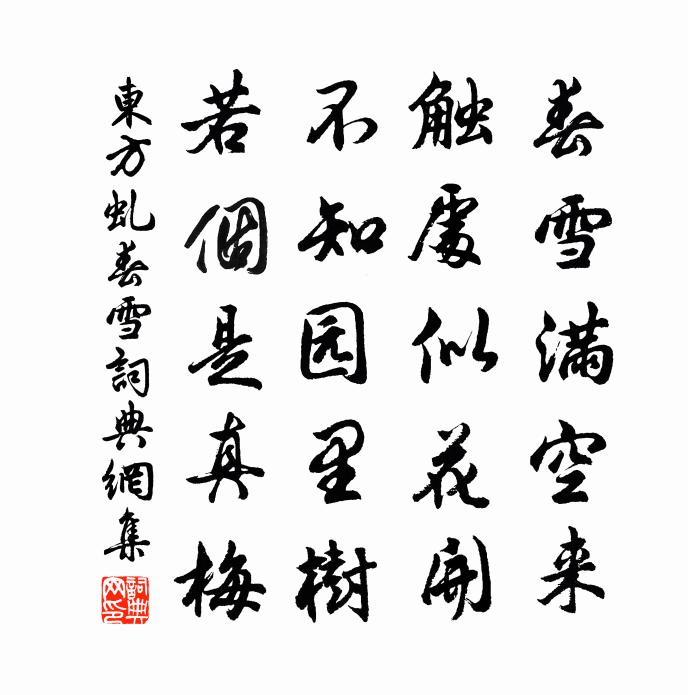 春雪满空来
触處似花開
不知园里樹
若個是真梅
東方虬春雪詞典網集
詞典网印